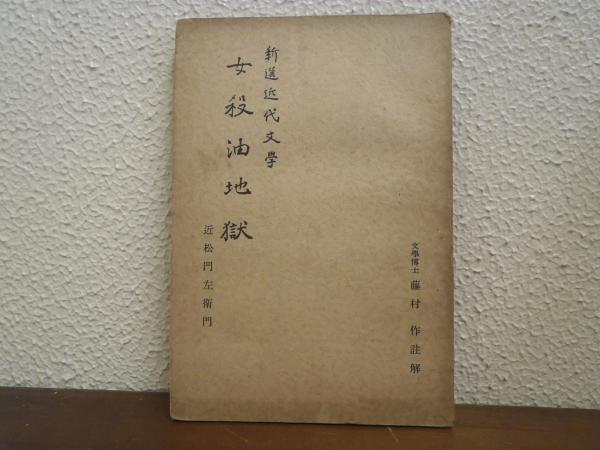 文學博士 藤村 作 註解
新選近代文學
女殺油地獄
近松門左衛門